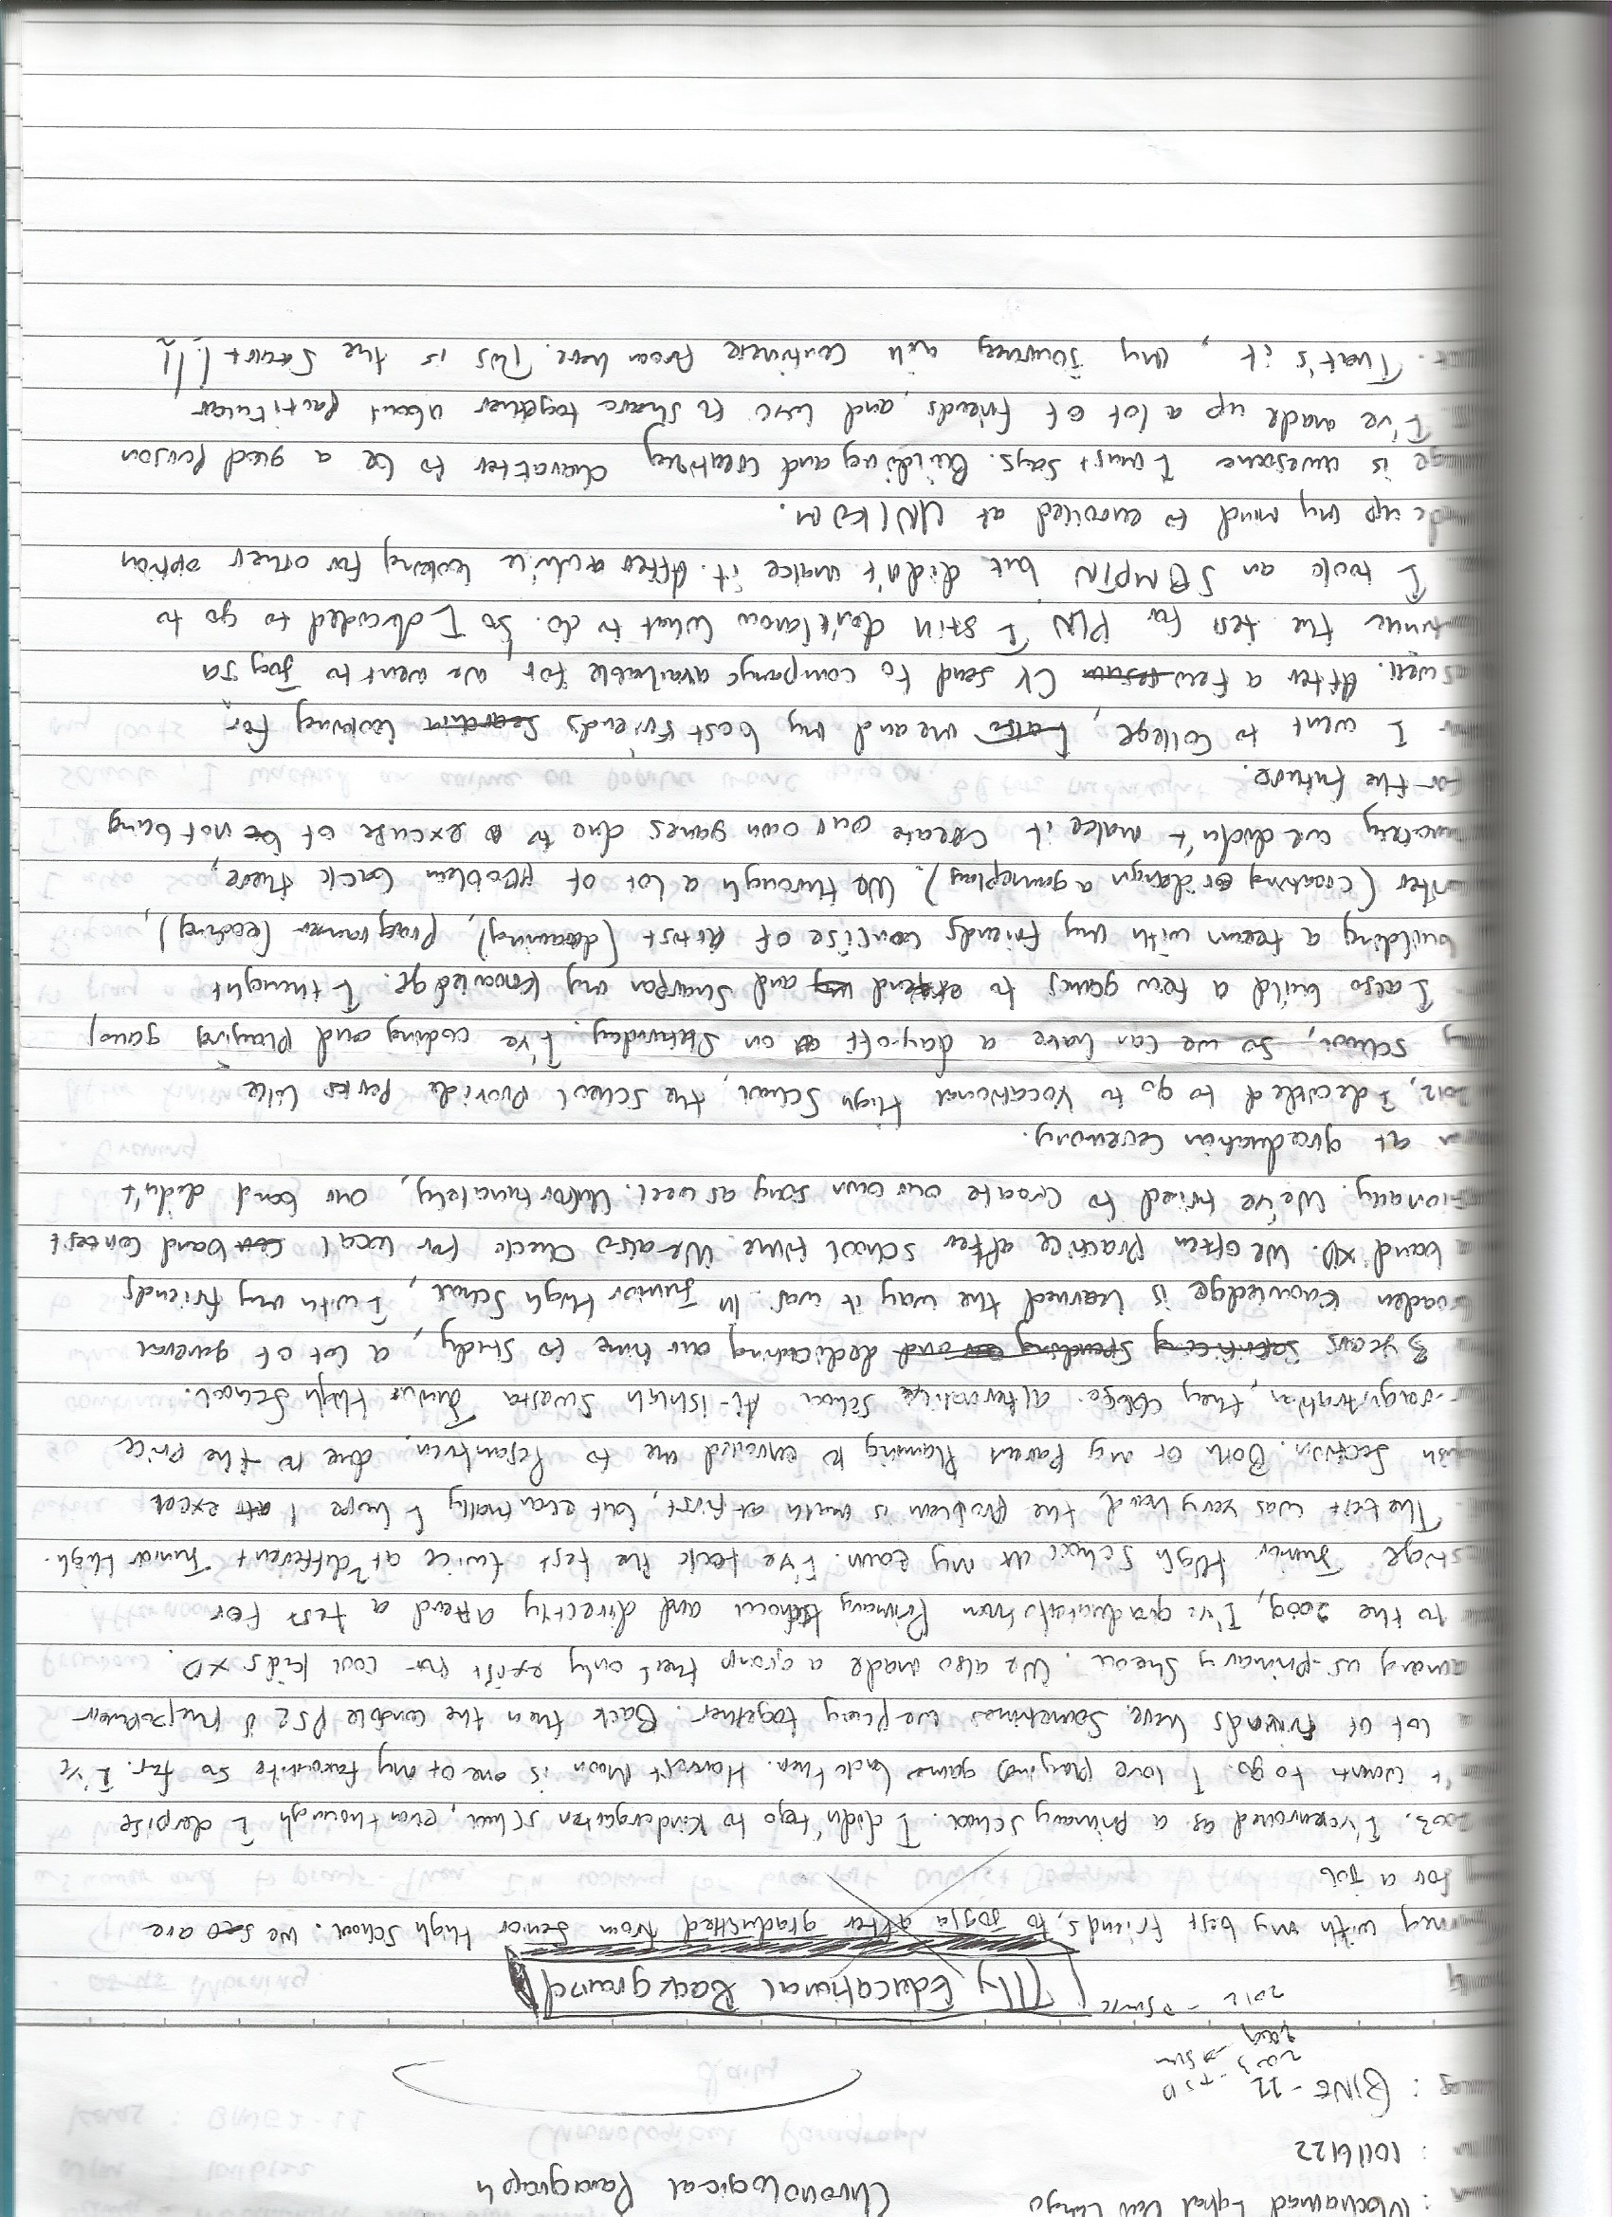 : Mochamad Iqbal Dwi Cahyo
: 10116122 Chronological Paragraph
: BING - 22
2003 - SD
2009 → SMP
2012 → SMK
[My Educational Background]
with my best friends, to Jogja after graduated from Senior High School. We are
for a Job
2003. I've enrolled as a primary school. I didn't go to kindergarten school, even though I despite
't want to go. I love playing games back then. Harvest Moon is one of my favourite so far. I've
lot of friends here. Sometimes we play together. Back then the console PS2 is the popular
among us - primary school. We also made a group that only exist for cool kids xD.
to the 2009, I've graduated from Primary school and directly attend a test for
Junior High School at my town. I've took the test twice at 2 different Junior High.
The test was very hard, the problem is math at first, but eventually I hope I excel
section. Both of my parent planning to enrolled me to Pesantren. due to the price
registration, they chose alternative school Al-ishlah Swasta Junior High School.
3 years sacrificing spending and dedicating our time to study, a lot of general
knowledge is learned the way it was. In Junior High School, I with my friends
band xD. We often practice after school time. We also check for local band contest
We've tried to create our own song as well. Unfortunately, our band didn't
at graduation ceremony.
2012, I decided to go to Vocational High School, the school provide perks like
school, so we can have a day-off on Saturday. I've coding and playing games
I also build a few games to extend and sharpen my knowledge. I thought
building a team with my friends concise of Artist (drawing), programmer (coding),
(creating or design a gameplay). We through a lot of problem back there,
we didn't make it create our own games due to excuse of not being
for the future.
I went to College, I also me and my best friends search looking for
as well. After a few CV send to company available for us went to Jogja
the test for PLN I still don't know what to do. So I decided to go to
I took an SBMPTN but didn't make it. After awhile looking for other option
up my mind to enrolled at UNIKOM.
is awesome I must says. Building and creating character to be a good person
I've made up a lot of friends, and love to share together about particular
. That's it, my journey will continue from here. This is the Start!!!